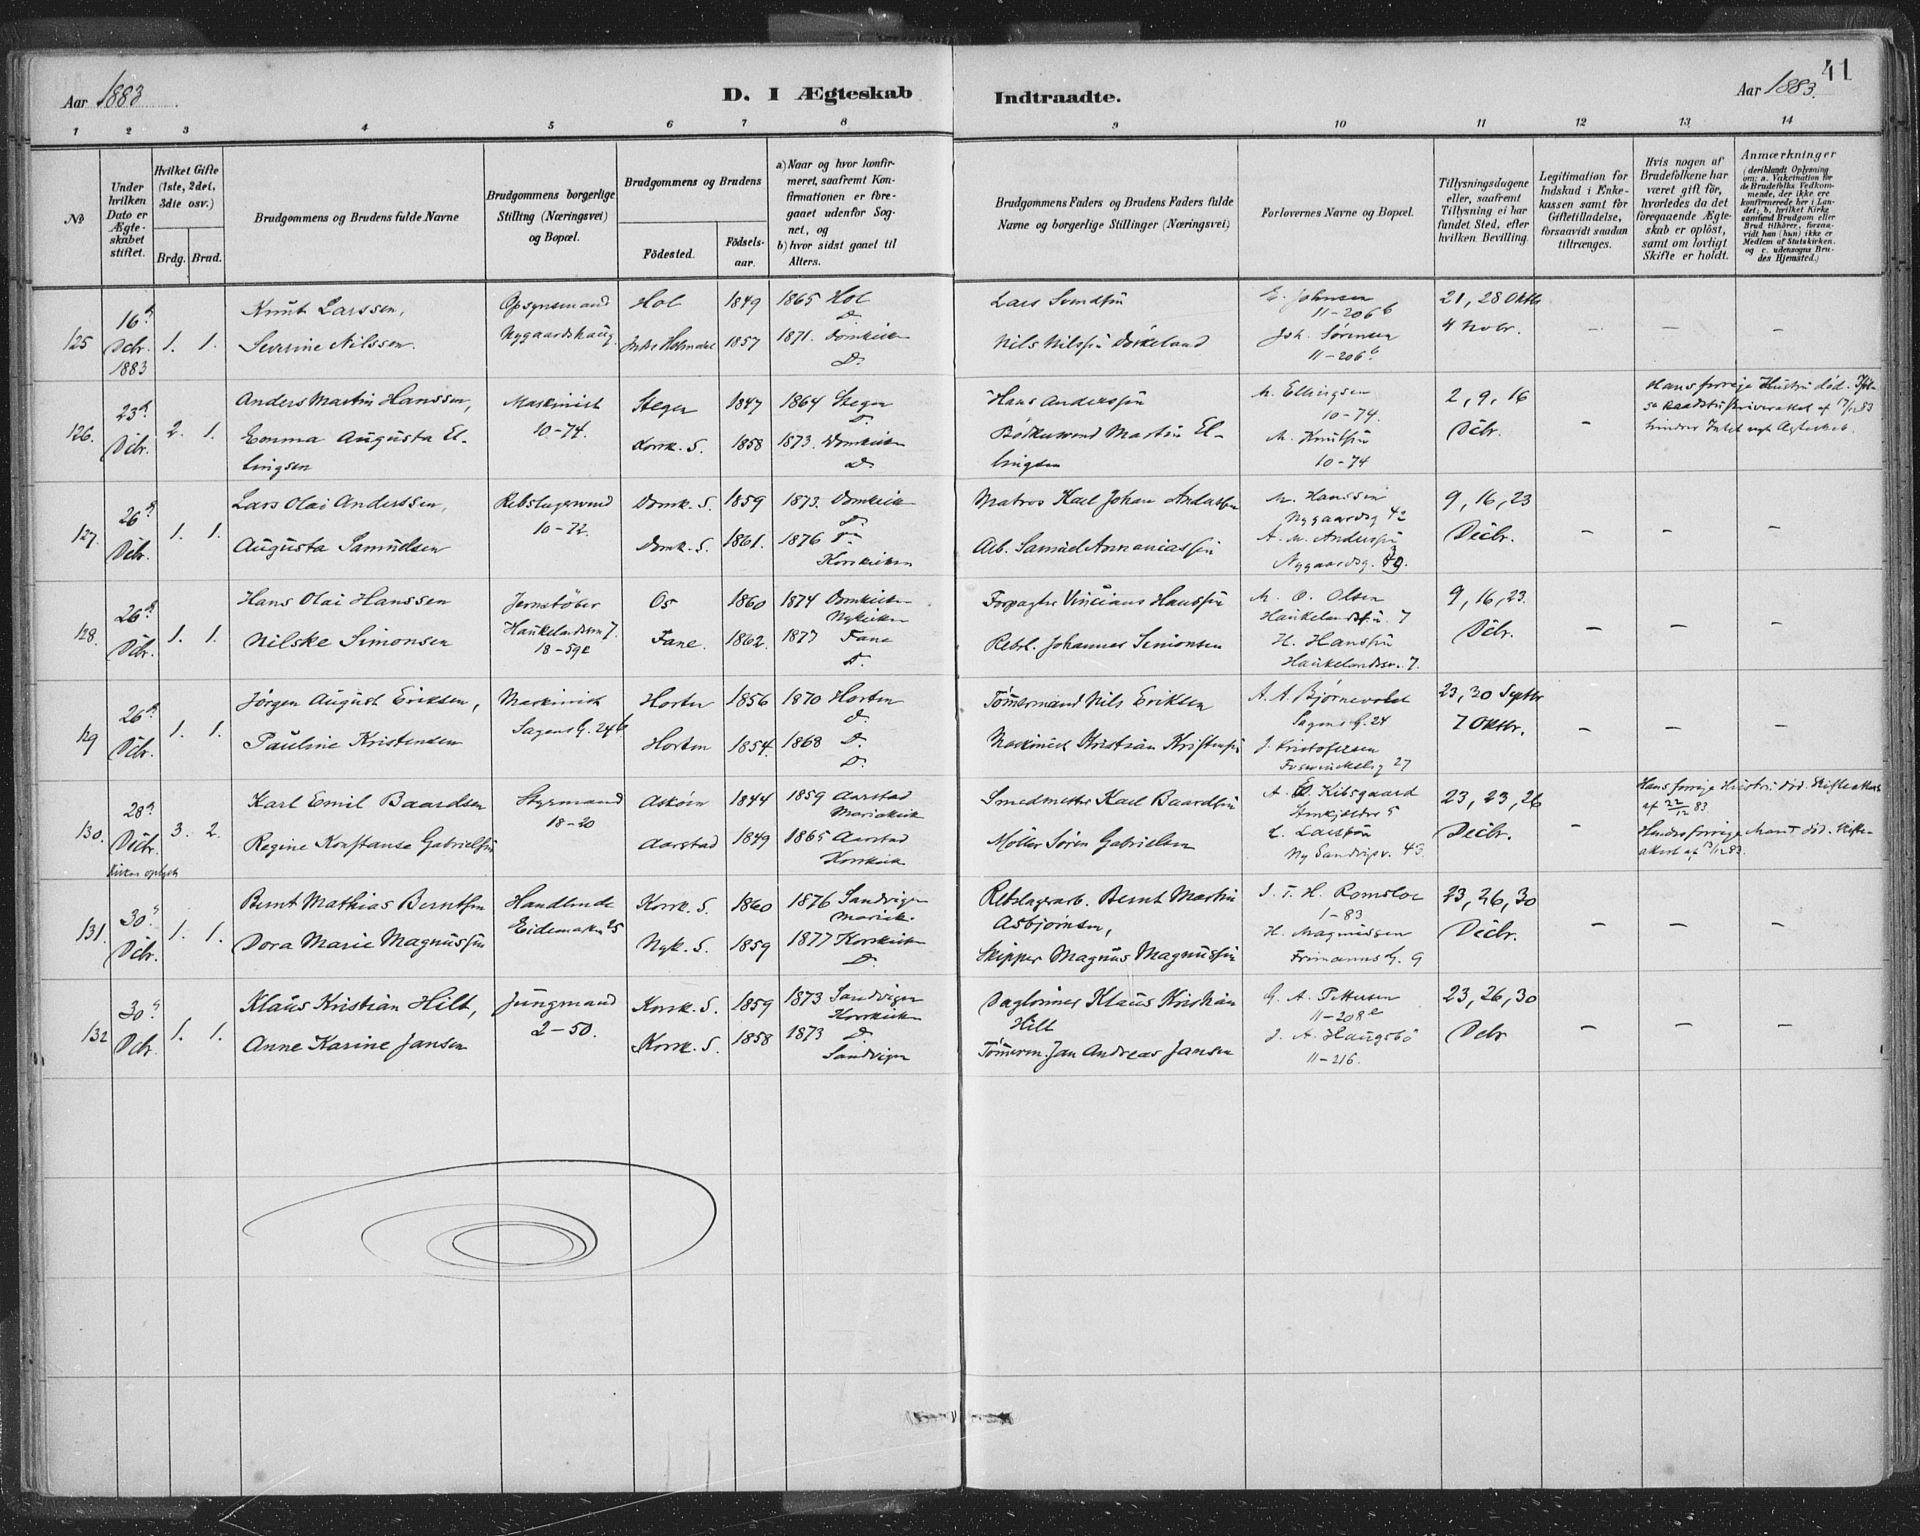 41
Aar 1883
D. I Ægteskab
Indtraadte.
Aar 1883.
1 2 3 4 5 6 7 8 9 10 11 12 13 14
No
Under hvilken Dato er Ægteskabet stiftet.
Hvilket Gifte (1ste, 2det, 3die osv.)
Brdg. Brud.
Brudgommens og Brudens fulde Navne
Brudgommens borgerlige Stilling (Næringsvei) og Bopæl.
Brudgommens og Brudens
Födested.
Födselsaar.
a) Naar og hvor konfirmeret, saafremt Konfirmationen er foregaaet udenfor Sognet, og
b) hvor sidst gaaet til Alters.
Brudgommens Faders og Brudens Faders fulde Navne og borgerlige Stillinger (Næringsvei)
Forlovernes Navne og Bopæl.
Tillysningsdagene eller, saafremt Tillysning ei har fundet Sted, efter hvilken Bevilling.
Legitimation for Indskud i Enkekassen samt for Giftetilladelse, forsaavidt saadan tiltrænges.
Hvis nogen af Brudefolkene har været gift för, hvorledes da det foregaaende Ægteskab er oplöst, samt om lovligt Skifte er holdt.
Anmærkninger
(deriblandt Oplysning om: a. Vakcination for de Brudefolks Vedkommende, der ikke ere konfirmerede her i Landet; b. hvilket Kirkesamfund Brudgom eller Brud tilhörer, forsaavidt han (hun) ikke er Medlem af Statskirken. og c. udensogns Brudes Hjemsted.)
125 16 Dcbr. 1883 1. 1.
Knut Larssen, Opsynsmand Hol 1849 1865 Hol D. Lars Svendsen E. Johnsen 11-206b 21, 28 Oktb
Severine Nilssen. Nygaardshaug 1857 1871. Domkirken D. Nils Nilssen Joh. Sørensen 11-206b 4 Novbr. – – –
126. 23 Dcbr. 2. 1.
Anders Martin Hanssen, Maskinist Steger 1847 1864 Steger D. Hans Anderssen M. Ellingsen 10-74. 2, 9, 16
Emma Augusta Ellingsen 10-74. Korsk. S. 1858 1873. Domkirken D. Martin Ellingsen M. Knutsen 10-74 Dcbr. –
Hans forrige Hustru død.
af 17/12 83
127. 26 Dcbr. 1. 1.
Lars Olai Anderssen, Rebslagersvend Domk. S. 1859 1873. Domkirk D. Matros Karl Johan Anderssen M. Hanssen Nygaardsg 42 9, 16, 23
Augusta Samuelsen 10-72. Domk. S. 1861. 1876 Korskirken Arb. Samuel Annaniassen A. M. Anderssen Nygaardsg. Dcbr. – – –
128. 26 Dcbr. 1. 1.
Hans Olai Hanssen Jernstøber Os 1860 1874 Domkirken Nykirken Forpagter Hanssen M. O. Olsen 7 9, 16, 23.
Nilske Simonsen Haukelandsvn 7. 18-59e Fane. 1862. 1877 Fane D. Rebsl. Johannes Simonsen H. Hanssen Haukelandsv. 7. Dcbr. – – –
129 26 Dcbr. 1. 1.
Jørgen August Eriksen, Maskinist Horten 1856 1870 Horten D. Tømmermand Nils Eriksen A. A. Bjørnevold Sagens G. 24 23, 30 Septbr
Pauline Kristensen Sagens G. 24b Horten 1854. 1868 D. D. Maskinist Kristian Kristensen J. Kristofersen 27 7 Oktbr. – – –
130. 28 Dcbr. 3. 2.
Karl Emil Baardsen Styrmand Askøen 1844 1859 Aarstad Mariakirk Smedmester Karl Baardsen A. Kibsgaard 5 23, 23, 26
Regine Konstanse Gabrielsen 18-20 Aarstad 1849 1865 Aarstad Korskirk Møller Søren Gabrielsen L. Larssen Ny Sandvigsv. 43 Decbr. –
Hans forrige Hustru død. Skifteakkt af 22/12 83
Hendes forrige Mand død. Skifteakt af 13/12 83.
131. 30 Dcbr. 1. 1.
Bernt Mathias Berntsen Handlende Korsk. S. 1860 1876 Sandvigen Mariak. Rebslagerarb. Bernt Martin Asbjørnsen, J. T. H. Romsloe 1-83 23, 26, 30
Dora Marie Magnussen Nyk. S. 1859 1877 Korskirken D. Skipper Magnus Magnussen H. Magnussen Frimanns G. 9 Decbr. – – –
132 30 Dcbr. 1. 1.
Klaus Kristian Hilt, Jungmand Korsk. S. 1859 1873 Sandvigen Korskirken Klaus Kristian Hilt G. A. Pettersen 11-208e 23, 26, 30
Anne Karine Jansen 2-50. Korsk. S. 1858 1873 D. Sandvigen Tømmerm. Jan Andreas Jansen J. A. Haugsbø 11-216. Dcbr – – –